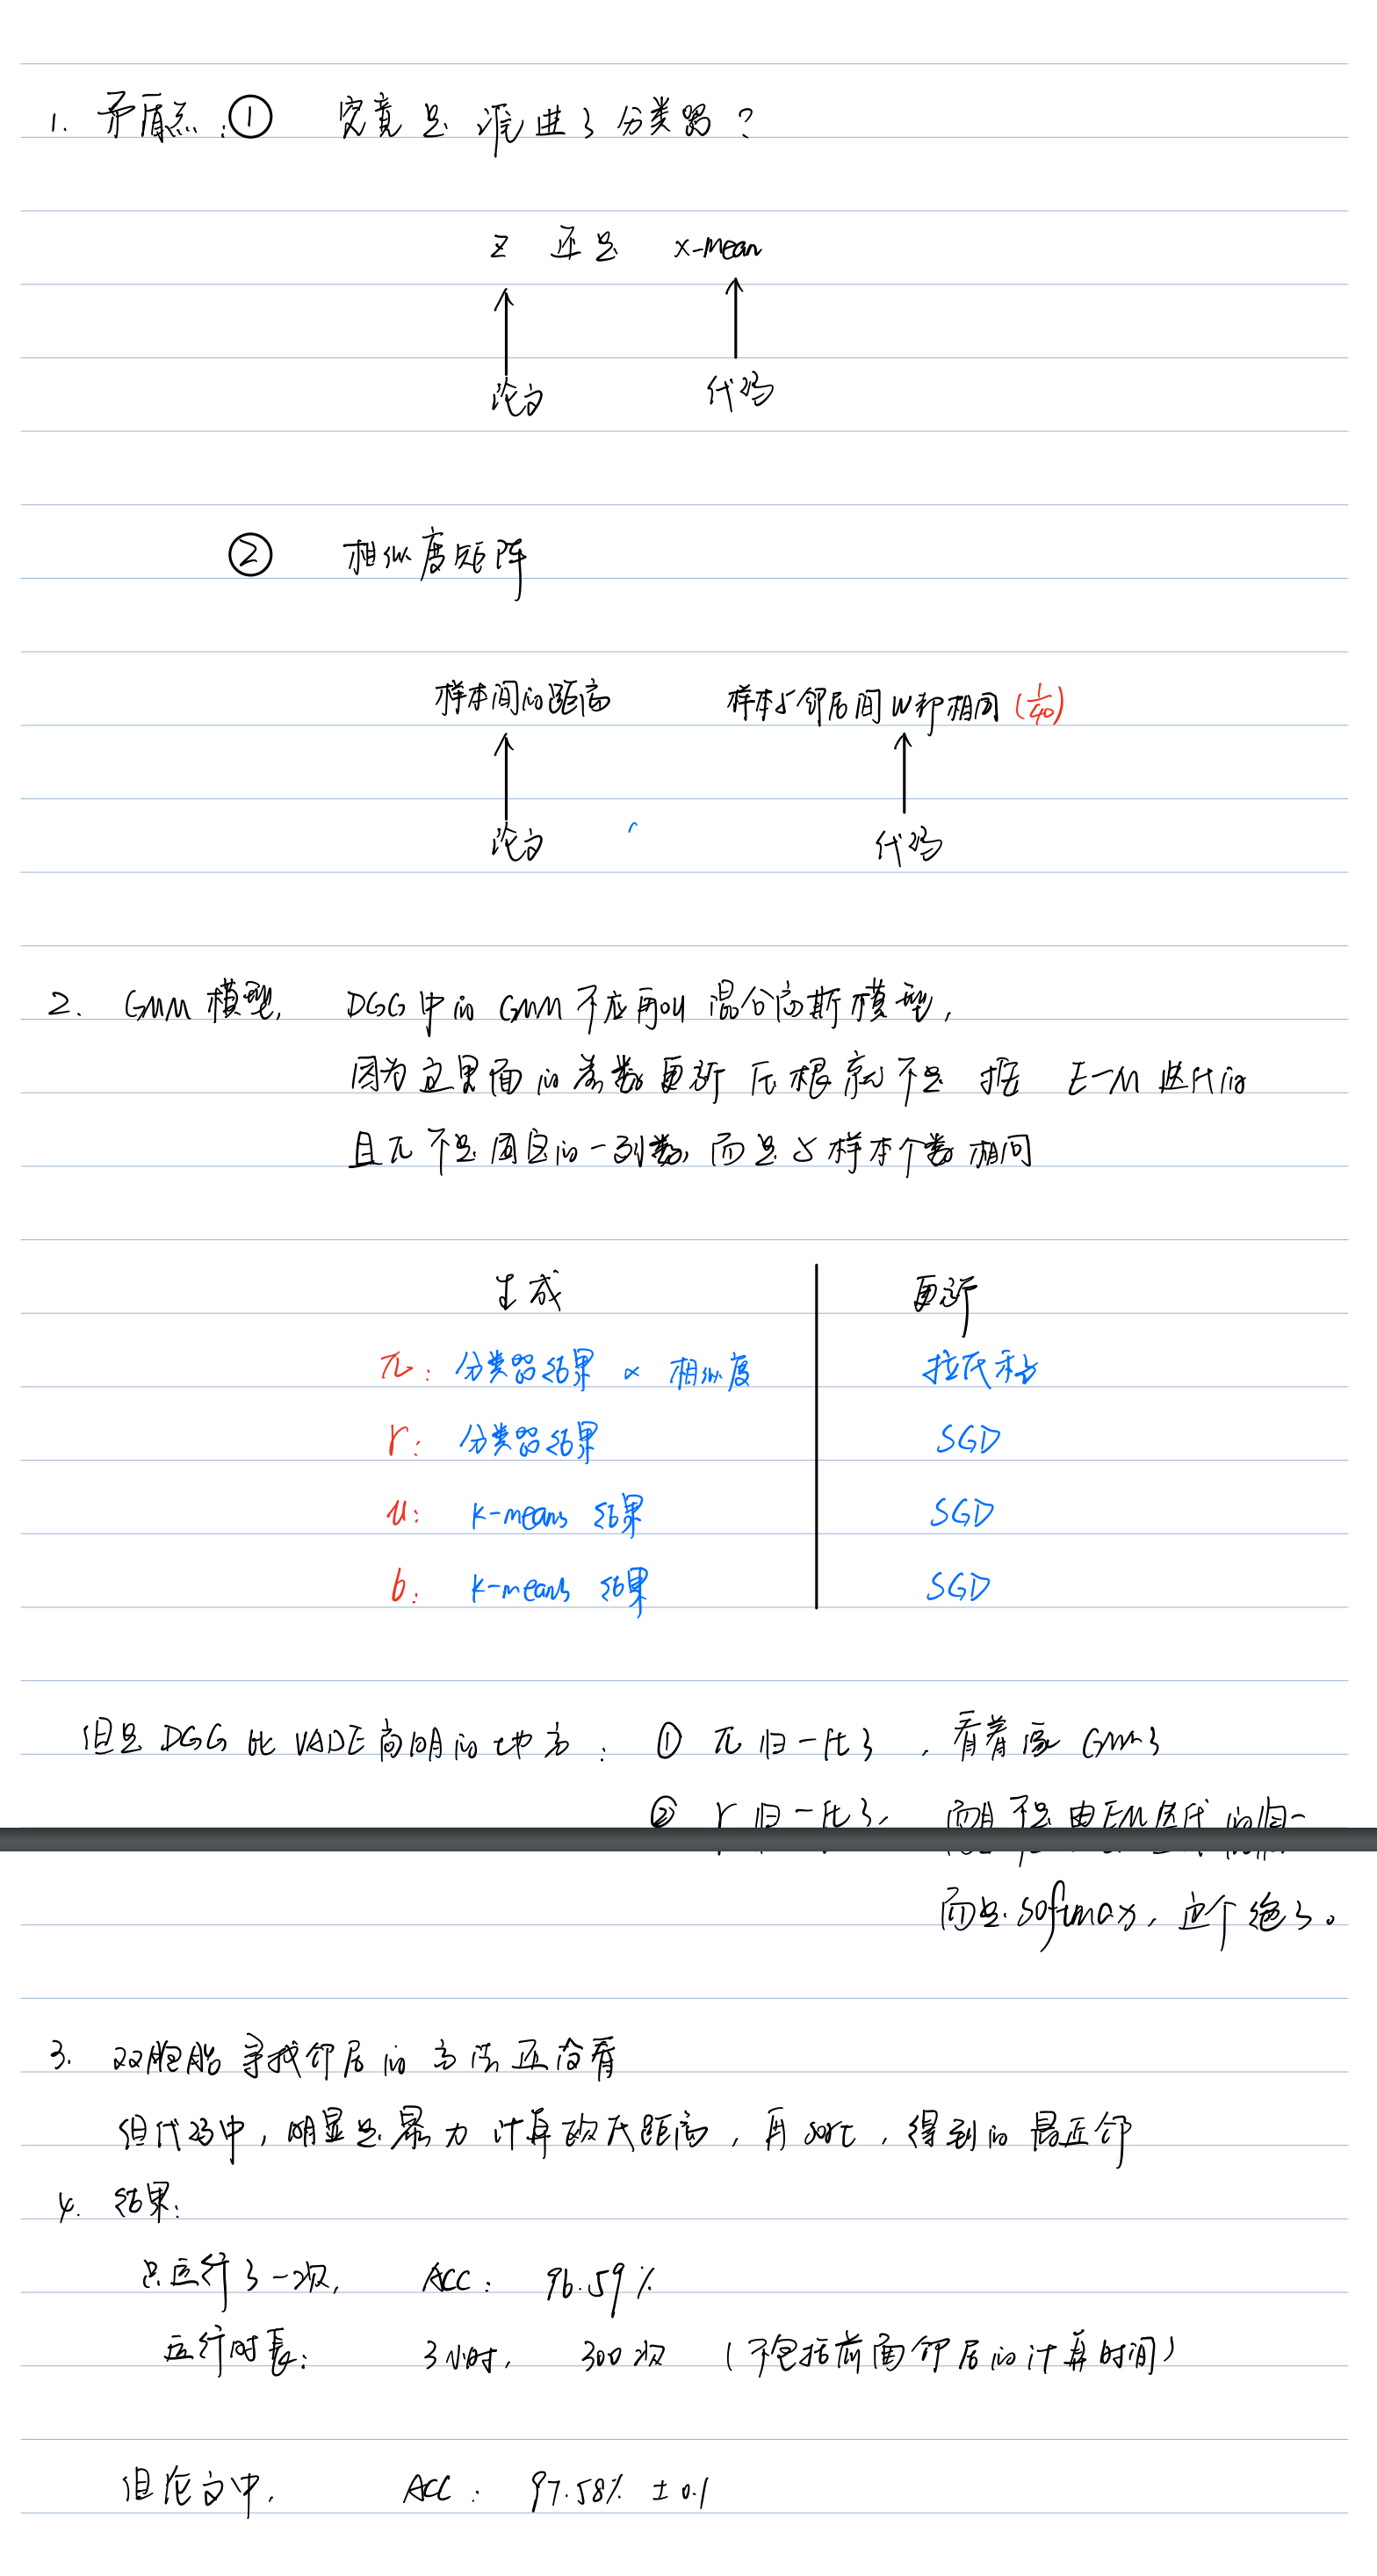 1. 矛盾点:① 究竟是谁进了分类器?
z 还是 x-mean
论文 代码
② 相似度矩阵
样本间的距离 样本与邻居间W都相同(1/40)
论文 代码
2. GMM模型, DGG中的GMM不应再叫混合高斯模型,
因为这里面的参数更新压根就不是按 E-M迭代的
且π不是固定的一列数,而是与样本个数相同
生成 更新
π: 分类器结果 ∝ 相似度 拉氏乘子
r: 分类器结果 SGD
u: k-means 结果 SGD
b: k-means 结果 SGD
但是DGG比VADE高明的地方: ① π归一化了,看着像GMM了
② r归一化了, 而且不是由EM迭代的归一
而是softmax,这个绝了。
3. 双胞胎寻找邻居的方法还没看
但代码中,明显是暴力计算欧氏距离,再sort,得到的最近邻
4. 结果:
只运行了一次, ACC: 96.59%
运行时长: 3小时, 300次 (不包括前面邻居的计算时间)
但论文中, ACC: 97.58% ±0.1